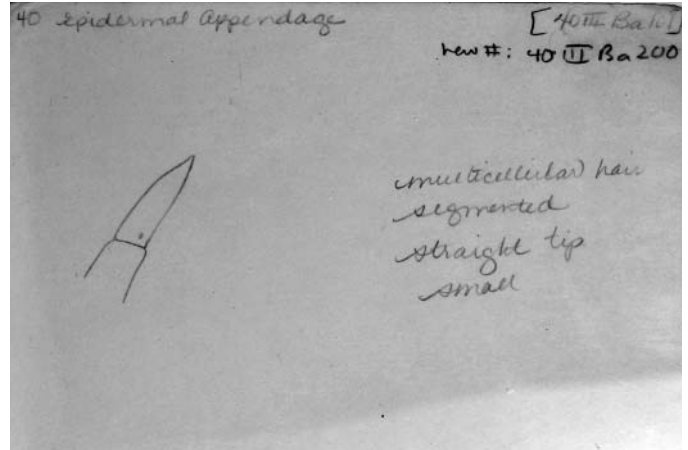 40 epidermal Appendage
[40 III Ba
new #: 40 II Ba 200
multicellular hair
segmented
straight tip
small